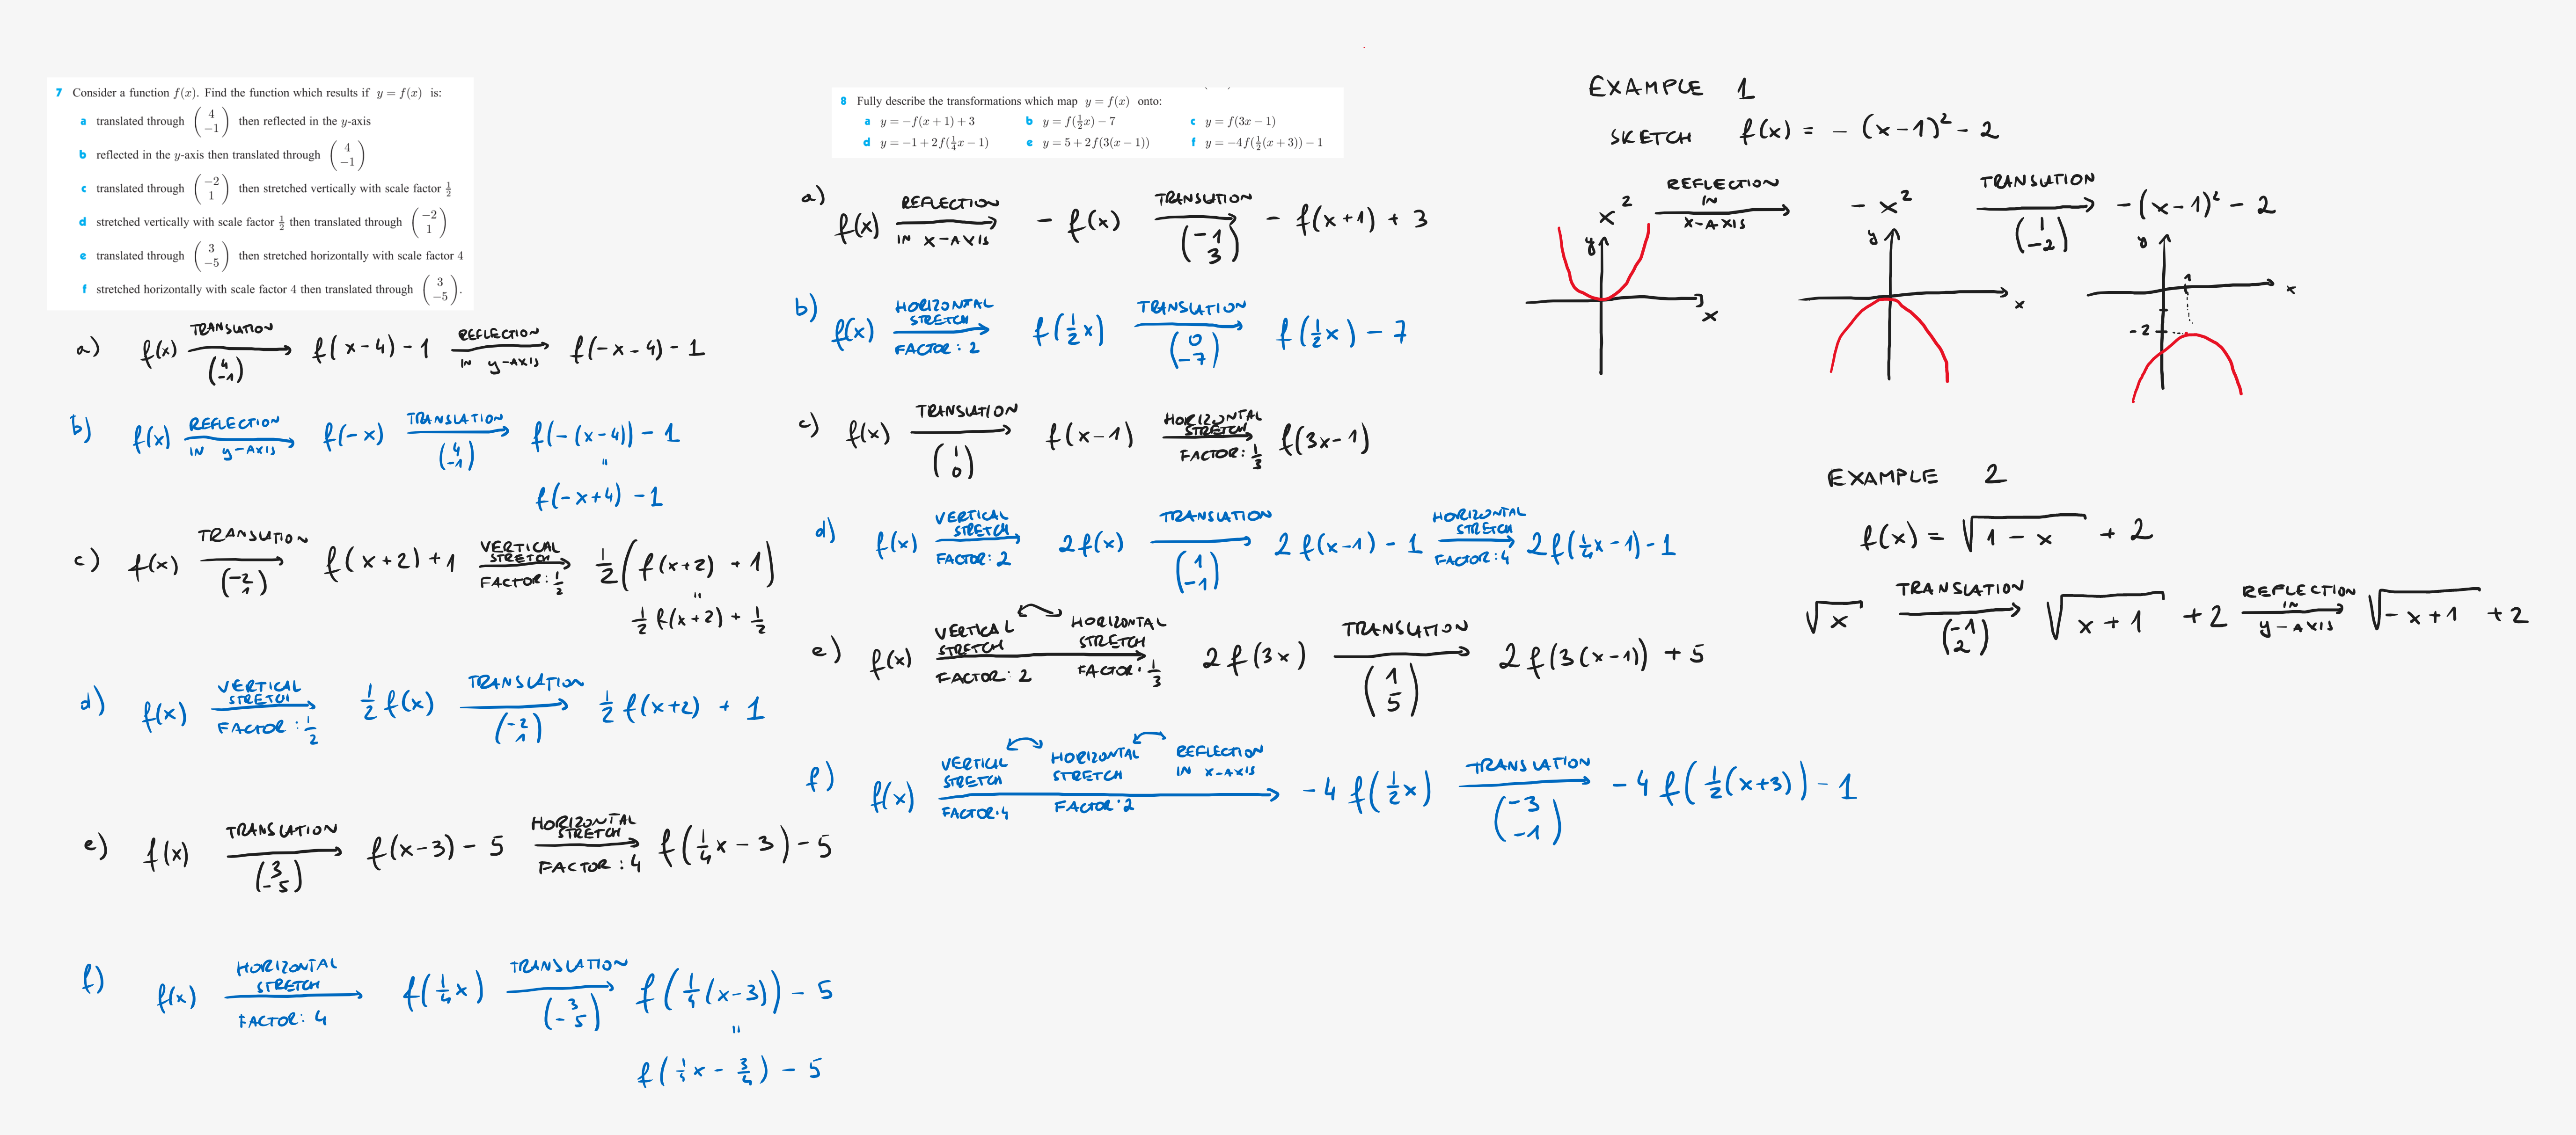 7 Consider a function f(x). Find the function which results if y = f(x) is:
a translated through (4 −1) then reflected in the y-axis
b reflected in the y-axis then translated through (4 −1)
c translated through (−2 1) then stretched vertically with scale factor 1/2
d stretched vertically with scale factor 1/2 then translated through (−2 1)
e translated through (3 −5) then stretched horizontally with scale factor 4
f stretched horizontally with scale factor 4 then translated through (3 −5).
a) f(x) TRANSLATION (4 −1) f(x−4)−1 REFLECTION IN y-AXIS f(−x−4)−1
b) f(x) REFLECTION IN y-AXIS f(−x) TRANSLATION (4 −1) f(−(x−4))−1
=
f(−x+4)−1
c) f(x) TRANSLATION (−2 1) f(x+2)+1 VERTICAL STRETCH FACTOR: 1/2 1/2(f(x+2)+1)
=
1/2 f(x+2) + 1/2
d) f(x) VERTICAL STRETCH FACTOR: 1/2 1/2 f(x) TRANSLATION (−2 1) 1/2 f(x+2) + 1
e) f(x) TRANSLATION (3 −5) f(x−3)−5 HORIZONTAL STRETCH FACTOR: 4 f(1/4 x − 3)−5
f) f(x) HORIZONTAL STRETCH FACTOR: 4 f(1/4 x) TRANSLATION (3 −5) f(1/4 (x−3))−5
=
f(1/4 x − 3/4) − 5
8 Fully describe the transformations which map y = f(x) onto:
a y = −f(x + 1) + 3 b y = f(1/2 x) − 7 c y = f(3x − 1)
d y = −1 + 2f(1/4 x − 1) e y = 5 + 2f(3(x − 1)) f y = −4f(1/2 (x + 3)) − 1
a) f(x) REFLECTION IN X-AXIS −f(x) TRANSLATION (−1 3) −f(x+1)+3
b) f(x) HORIZONTAL STRETCH FACTOR: 2 f(1/2 x) TRANSLATION (0 −7) f(1/2 x) − 7
c) f(x) TRANSLATION (1 0) f(x−1) HORIZONTAL STRETCH FACTOR: 1/3 f(3x−1)
d) f(x) VERTICAL STRETCH FACTOR: 2 2f(x) TRANSLATION (1 −1) 2f(x−1)−1 HORIZONTAL STRETCH FACTOR: 4 2f(1/4 x−1)−1
e) f(x) VERTICAL STRETCH FACTOR: 2 HORIZONTAL STRETCH FACTOR: 1/3 2f(3x) TRANSLATION (1 5) 2f(3(x−1))+5
f) f(x) VERTICAL STRETCH FACTOR: 4 HORIZONTAL STRETCH FACTOR: 2 REFLECTION IN X-AXIS −4f(1/2 x) TRANSLATION (−3 −1) −4f(1/2 (x+3))−1
EXAMPLE 1
SKETCH f(x) = −(x−1)² − 2
x² REFLECTION IN X-AXIS −x² TRANSLATION (1 −2) −(x−1)² − 2
y x
y x
y x 1 −2
EXAMPLE 2
f(x) = √(1−x) + 2
√x TRANSLATION (−1 2) √(x+1) + 2 REFLECTION IN y-AXIS √(−x+1) + 2